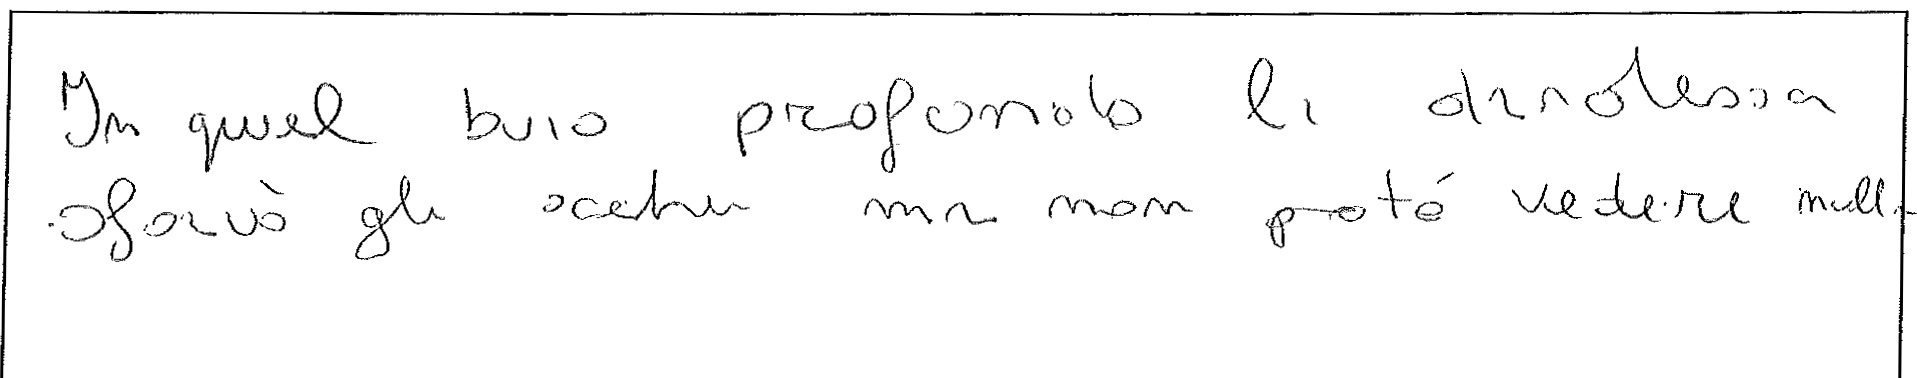 In quel buio profondo li dinolessa
sforzò gli occhi ma non poté vedere nulla